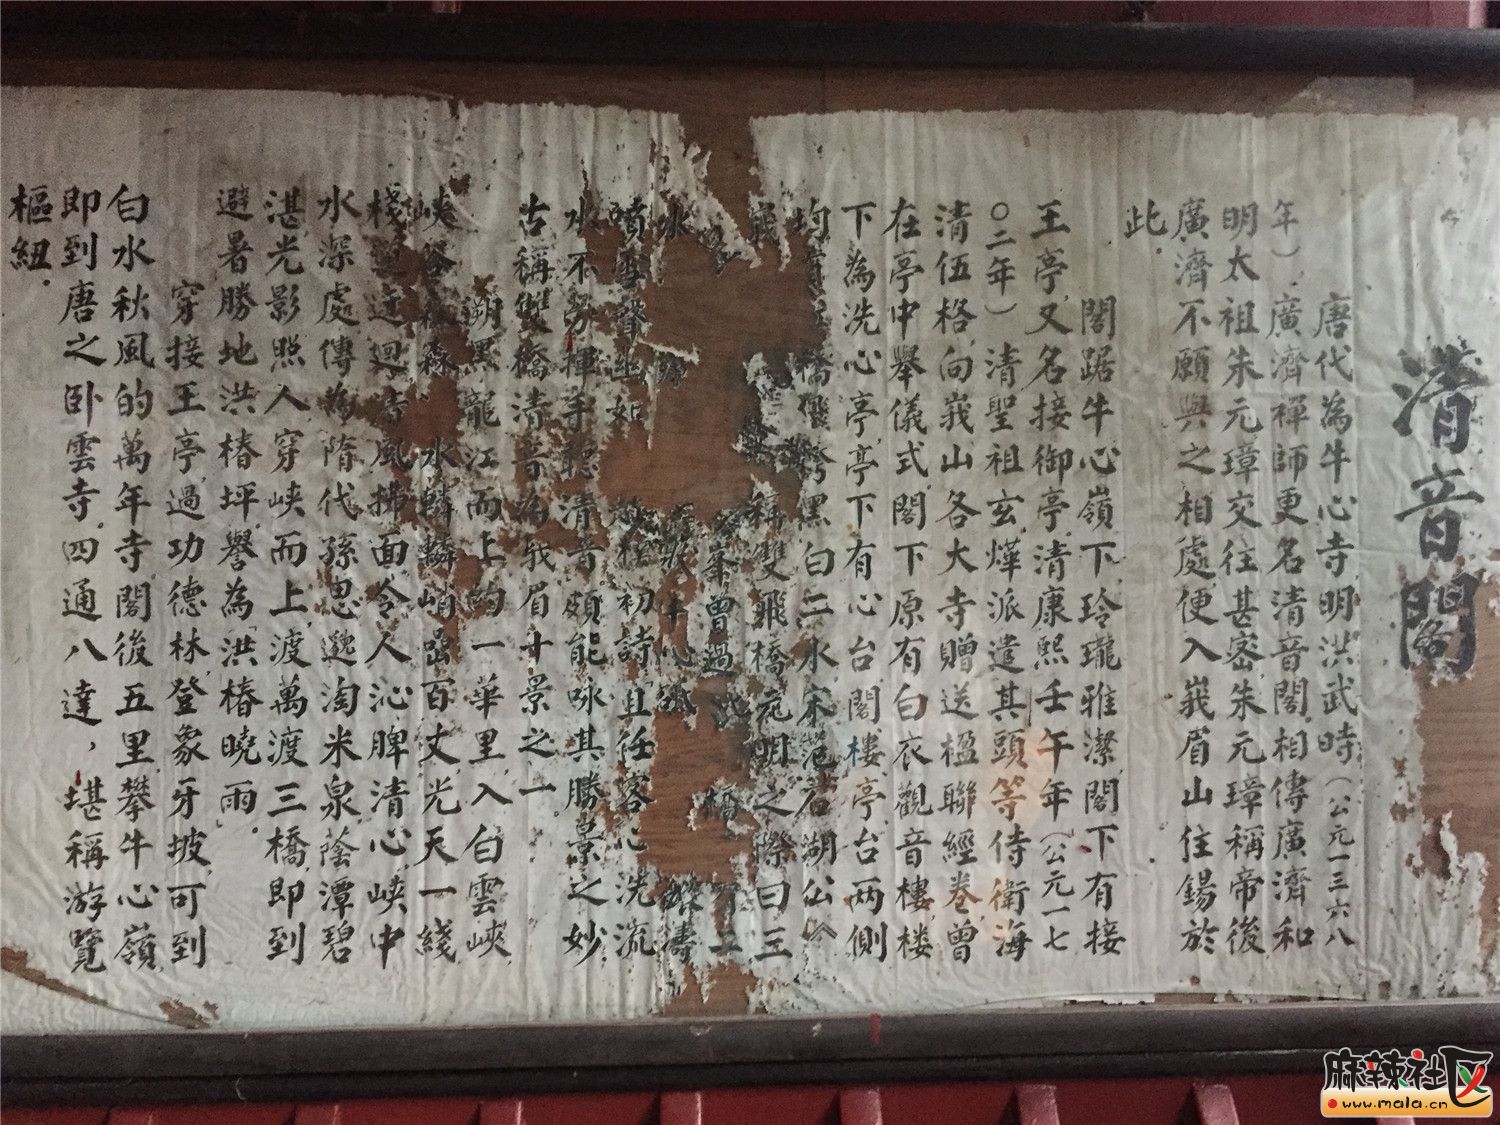 清音閣
唐代為牛心寺明洪武時（公元一三六八
年），廣濟禪師更名清音閣。相傳廣濟和
明太祖朱元璋交往甚密，朱元璋稱帝後
廣濟不願與之相處便入峩眉山住錫於
此．
閣踞牛心嶺下玲瓏雅潔閣下有接
王亭，又名接御亭，清康熙壬午年（公元一七
〇二年）清聖祖玄燁派遣其頭等侍衛海
清伍格，向峩山各大寺贈送楹聯經卷，曾
在亭中舉儀式，閣下原有白衣觀音樓，樓
下為洗心亭，亭下有心台閣樓亭台两侧
均 橋 黑白二水，宋 湖公
稱雙飛橋元明之際曰三
峯曾過此 橋 二
水 牛心 濤
噴雪聲幽如 初詩，且任客心洗流
水不勞揮手聽清音，頗能咏其勝景之妙
古稱雙橋清音為峩眉十景之一．
溯黑龍江而上約一華里入白雲峽，
峽谷 森 水轔轔峭 百丈光天一綫
棧道迂迴清風拂面令人沁脾清心峽中
水深處傳為隋代孫思邈淘米泉，蔭潭碧
湛光影照人，穿峽而上，渡萬渡三橋，即到
避暑勝地洪椿坪，譽為「洪椿曉雨」．
穿接王亭，過功德林，登象牙坡，可到
白水秋風的萬年寺閣後五里攀牛心嶺，
即到唐之卧雲寺．四通八達，堪稱游覽
樞紐．
麻辣社区
www.mala.cn